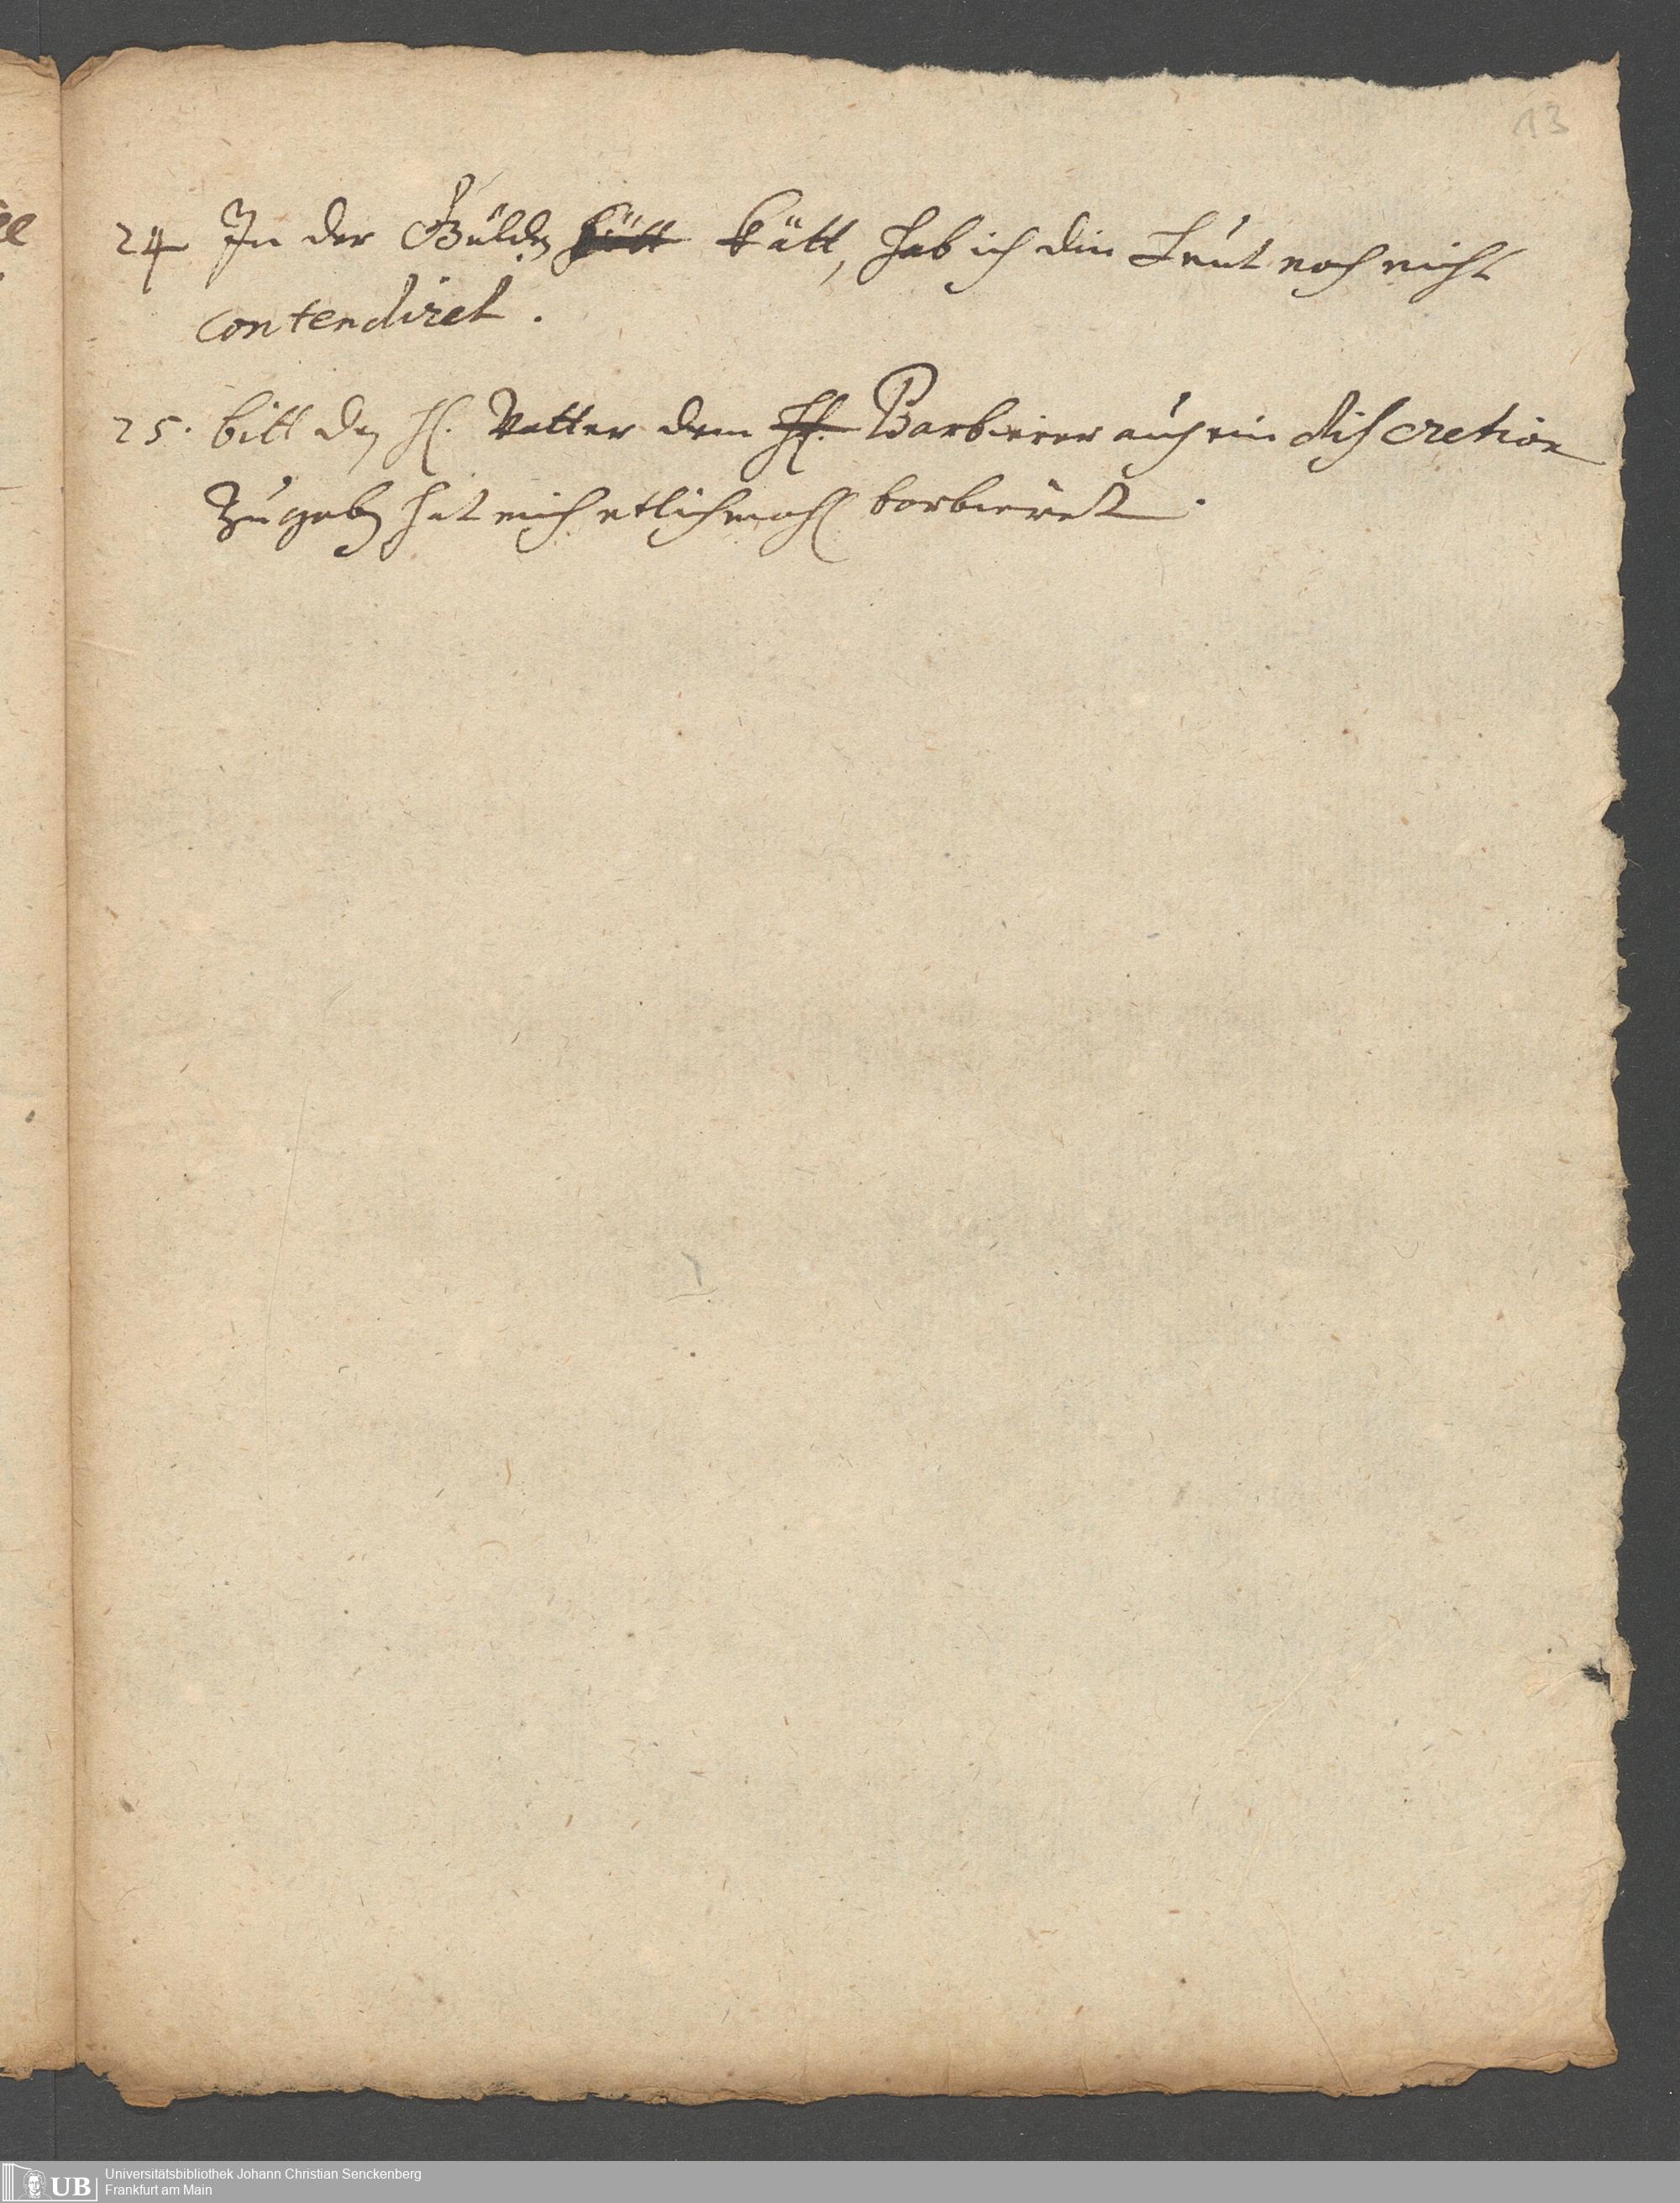 13
24 In der Gülden Kätt, hab ich die Leut noch nicht
contendiret.
25. bitt den H. Vatter dem H. Barbierer auch ein discretion
zugeben hat mich etlichmahl barbieret.
Universitätsbibliothek Johann Christian Senckenberg
Frankfurt am Main
UB